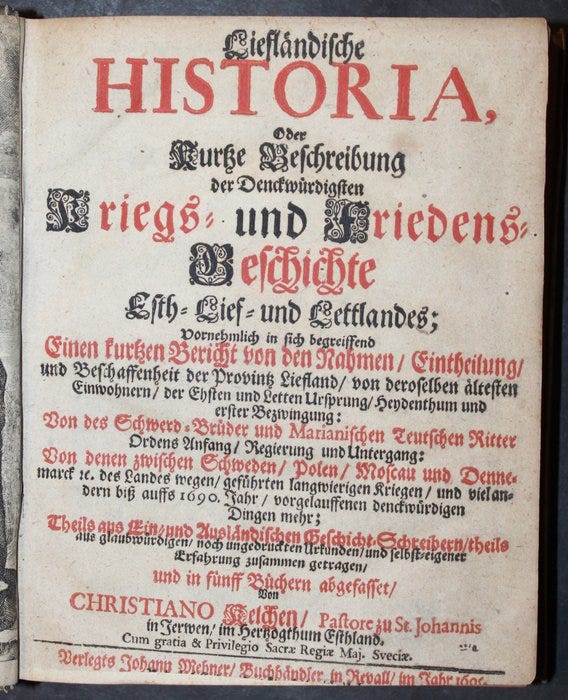 Liefländische
HISTORIA,
Oder
Kurtze Beschreibung
der Denckwürdigsten
Kriegs- und Friedens-
Geschichte
Esth- Lief- und Lettlandes;
Vornehmlich in sich begreiffend
Einen kurtzen Bericht von den Nahmen / Eintheilung /
und Beschaffenheit der Provintz Liefland / von deroselben ältesten
Einwohnern / der Ehsten und Letten Ursprung / Heydenthum und
erster Bezwingung:
Von des Schwerd-Brüder und Marianischen Teutschen Ritter
Ordens Anfang / Regierung und Untergang:
Von denen zwischen Schweden / Polen / Moscau und Denne-
marck ꝛc. des Landes wegen / geführten langwierigen Kriegen / und viel an-
dern biß auffs 1690. Jahr / vorgelauffenen denckwürdigen
Dingen mehr;
Theils aus Ein- und Ausländischen Geschicht-Schreibern / theils
aus glaubwürdigen / noch ungedruckten Urkunden / und selbst-eigener
Erfahrung zusammen getragen /
und in fünff Büchern abgefasset /
Von
CHRISTIANO Kelchen / Pastore zu St. Johannis
in Jerwen / im Hertzogthum Esthland.
Cum gratia & Privilegio Sacræ Regiæ Maj. Sveciæ.
Verlegts Johann Mehner / Buchhändler in Revall / im Jahr